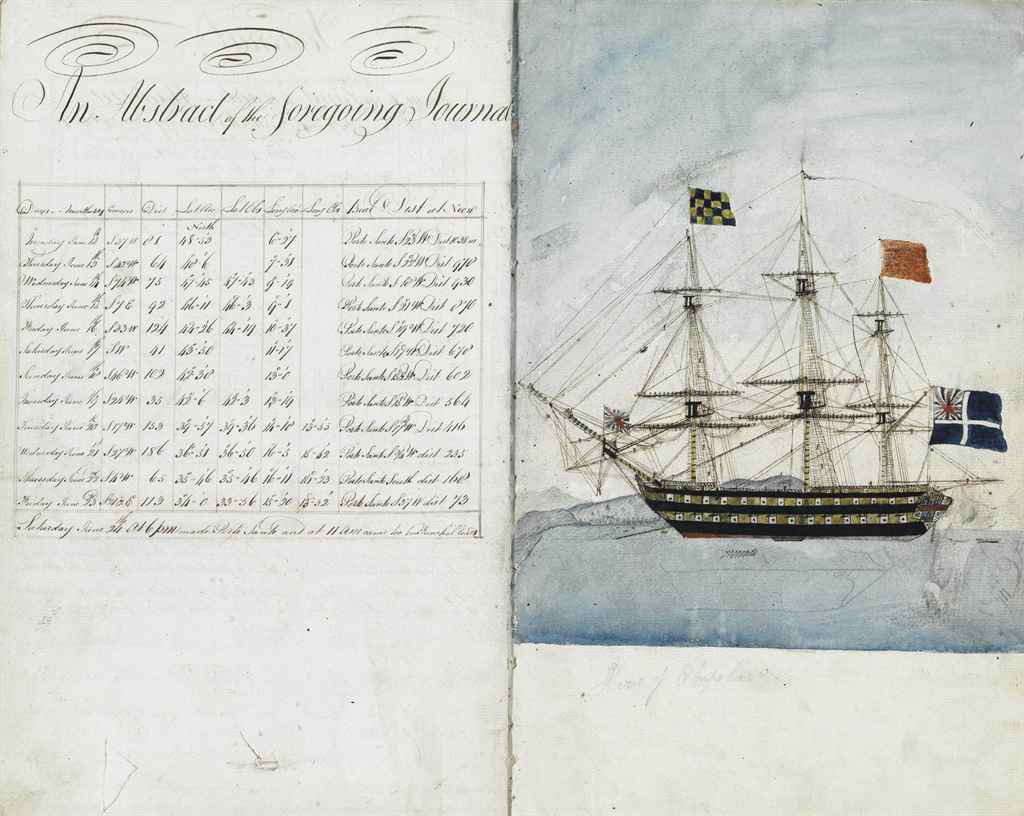 An Abstract of the foregoing Journal
Days Months Courses Dist Lat Acc Lat Obs Long Acc Long Obs Bear & Dist at Noon
North
June 12 S 27 W 81 48-52 6-27 Porto Santo S 23 W Dist
June 13 64 7-31 Porto Santo Dist 970
Wednesday June 14 S 74 W 75 47-45 47-43 9-19 Porto Santo Dist 930
Thursday June 15 S 7 E 92 46-11 46-3 9-1 Porto Santo Dist 870
Friday June 16 S 33 W 124 44-36 44-19 10-37 Porto Santo S 19 W Dist 720
Saturday June 17 SW 41 43-50 11-17 Porto Santo S 17 W Dist 670
Sunday June 18 S 46 W 102 42-38 13-0 Porto Santo Dist 602
June 19 S 24 W 35 42-6 42-3 13-14 Porto Santo S 15 W Dist 564
June 20 S 17 W 153 39-37 39-36 14-10 13-55 Porto Santo Dist 416
Wednesday June 21 S 27 W 186 36-51 36-50 16-5 15-42 Porto Santo dist 235
Thursday June 22 65 35-46 35-46 16-11 15-23 Porto Santo South dist 168
Friday June 23 113 34-0 33-56 15-30 15-32 Porto Santo S 37 W dist 73
Saturday June 24th At 6 pm made Porto Santo and at 11 AM came too